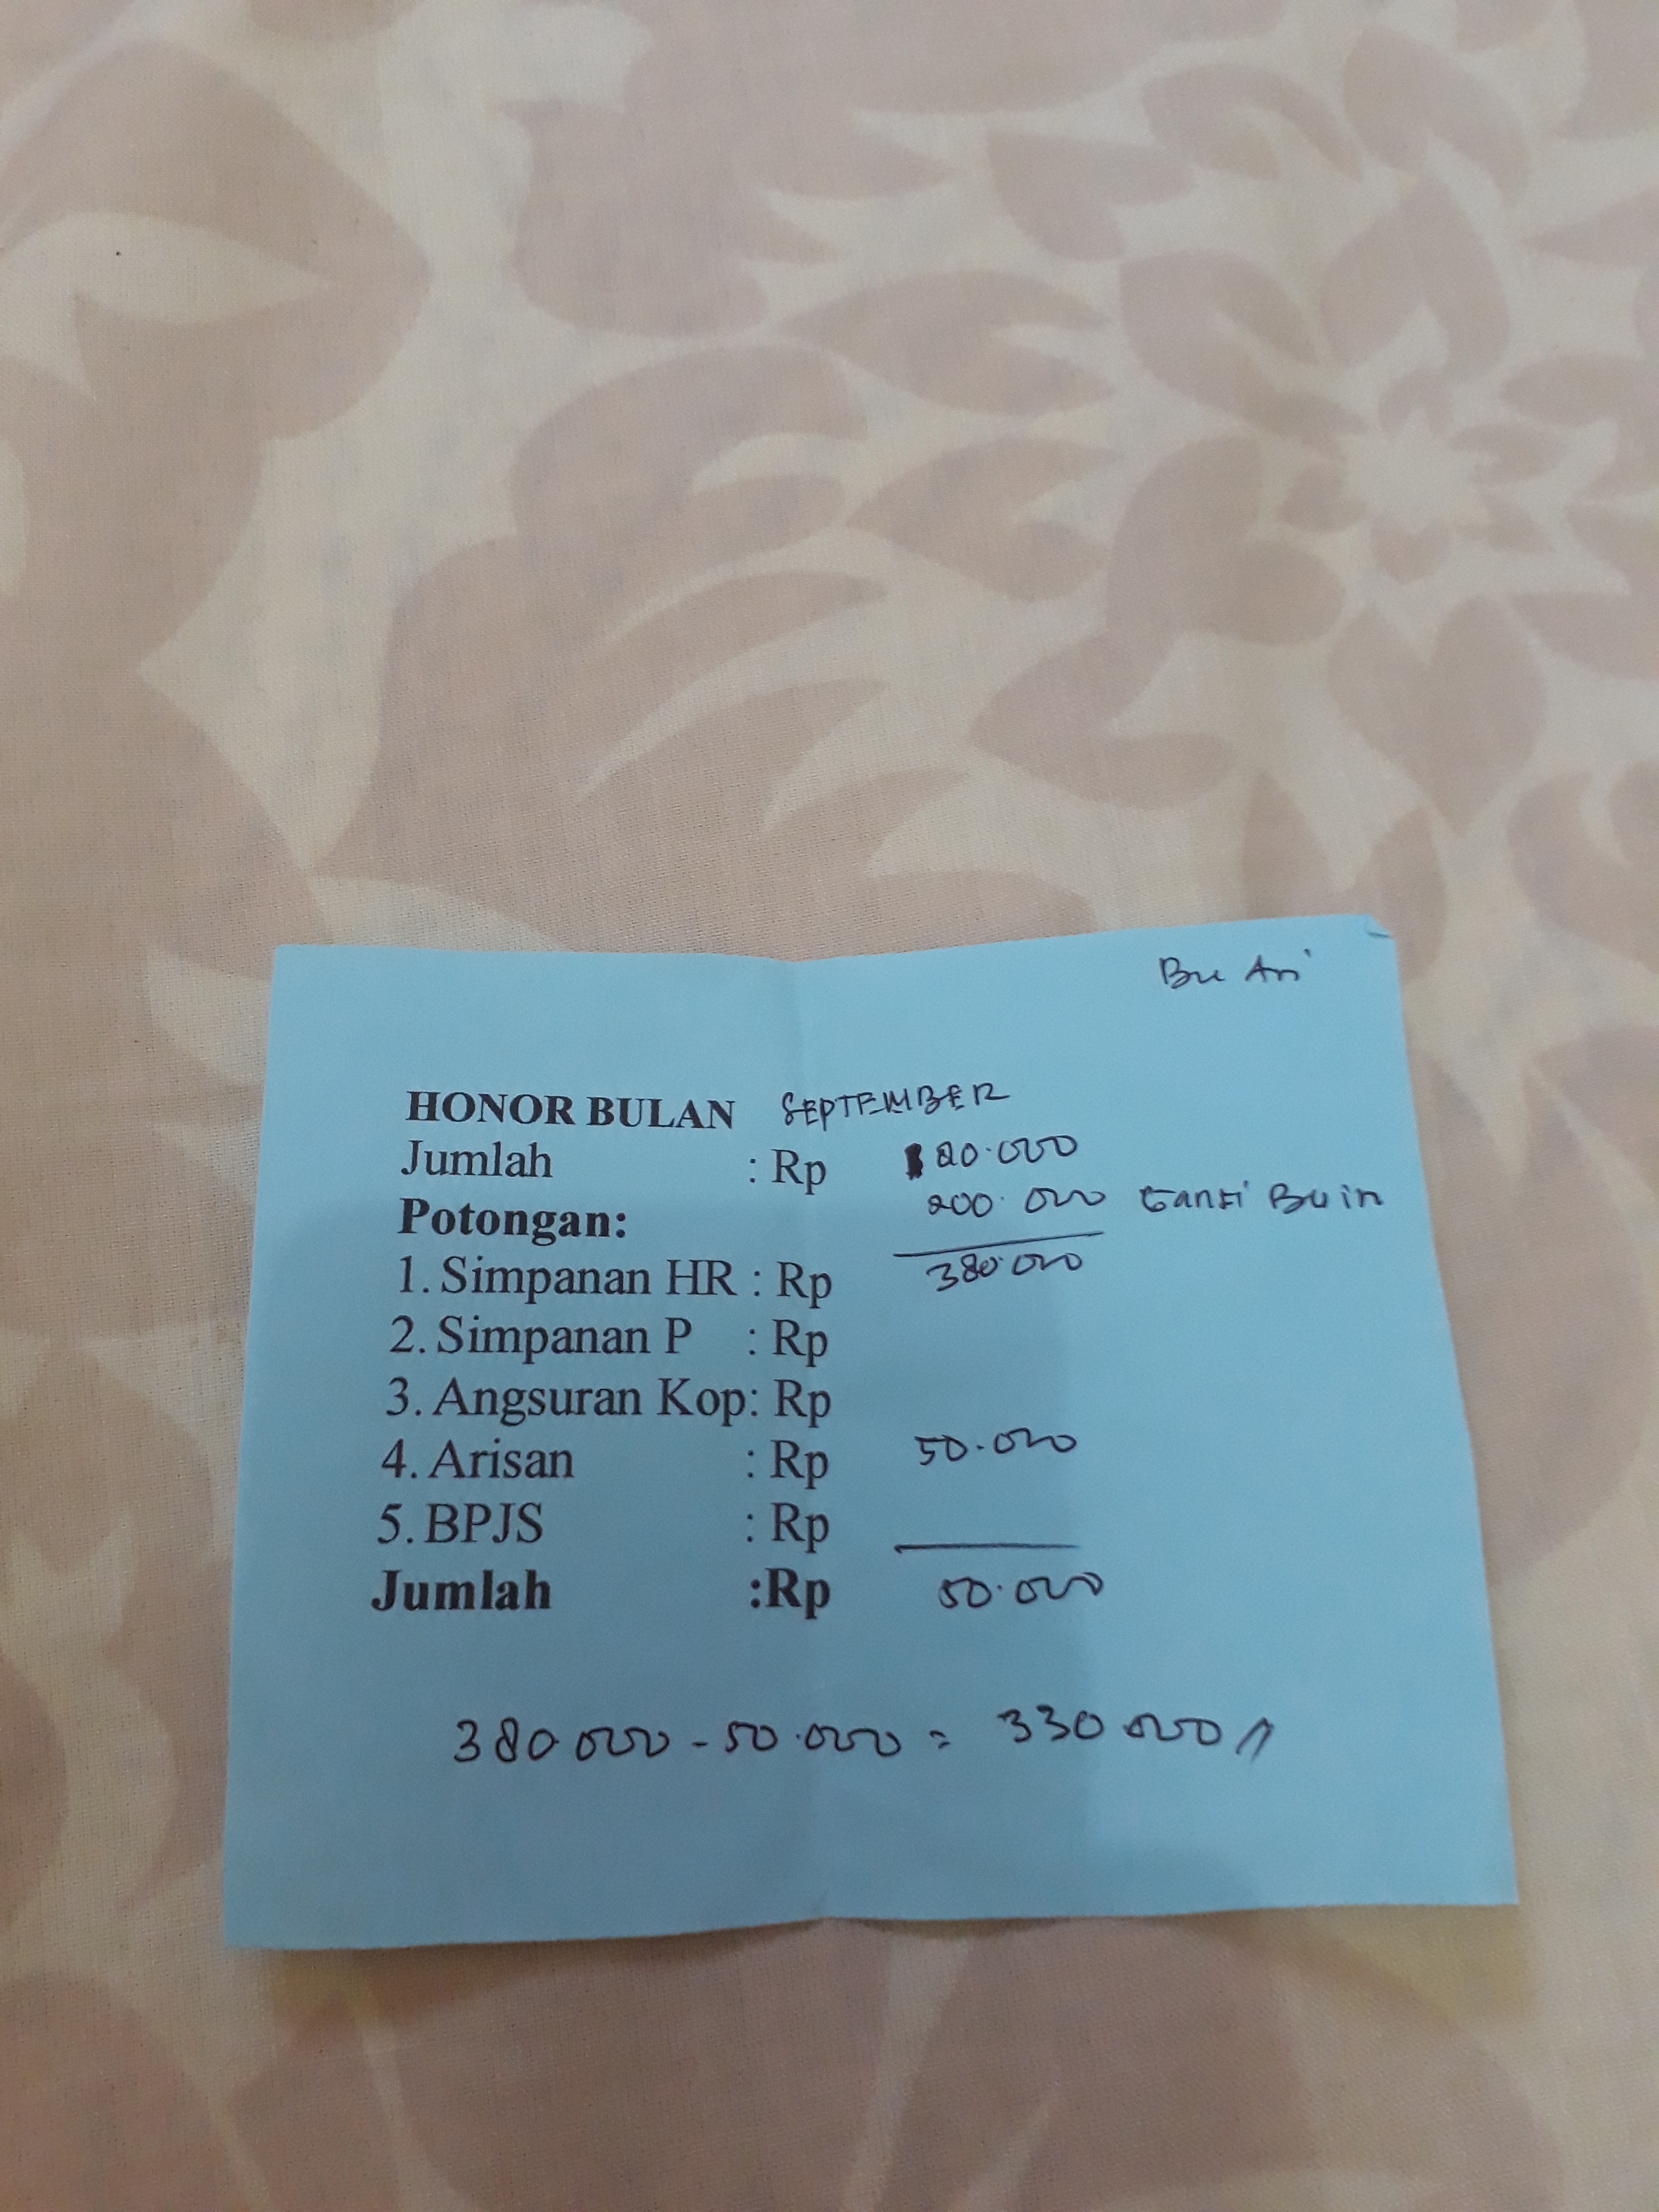 Bu Ari
HONOR BULAN SEPTEMBER
Jumlah : Rp 180.000
200.000 Ganti Bu in
Potongan:
380.000
1. Simpanan HR : Rp
2. Simpanan P : Rp
3. Angsuran Kop: Rp
4. Arisan : Rp 50.000
5. BPJS : Rp
Jumlah :Rp 50.000
380.000 - 50.000 = 330.000 //